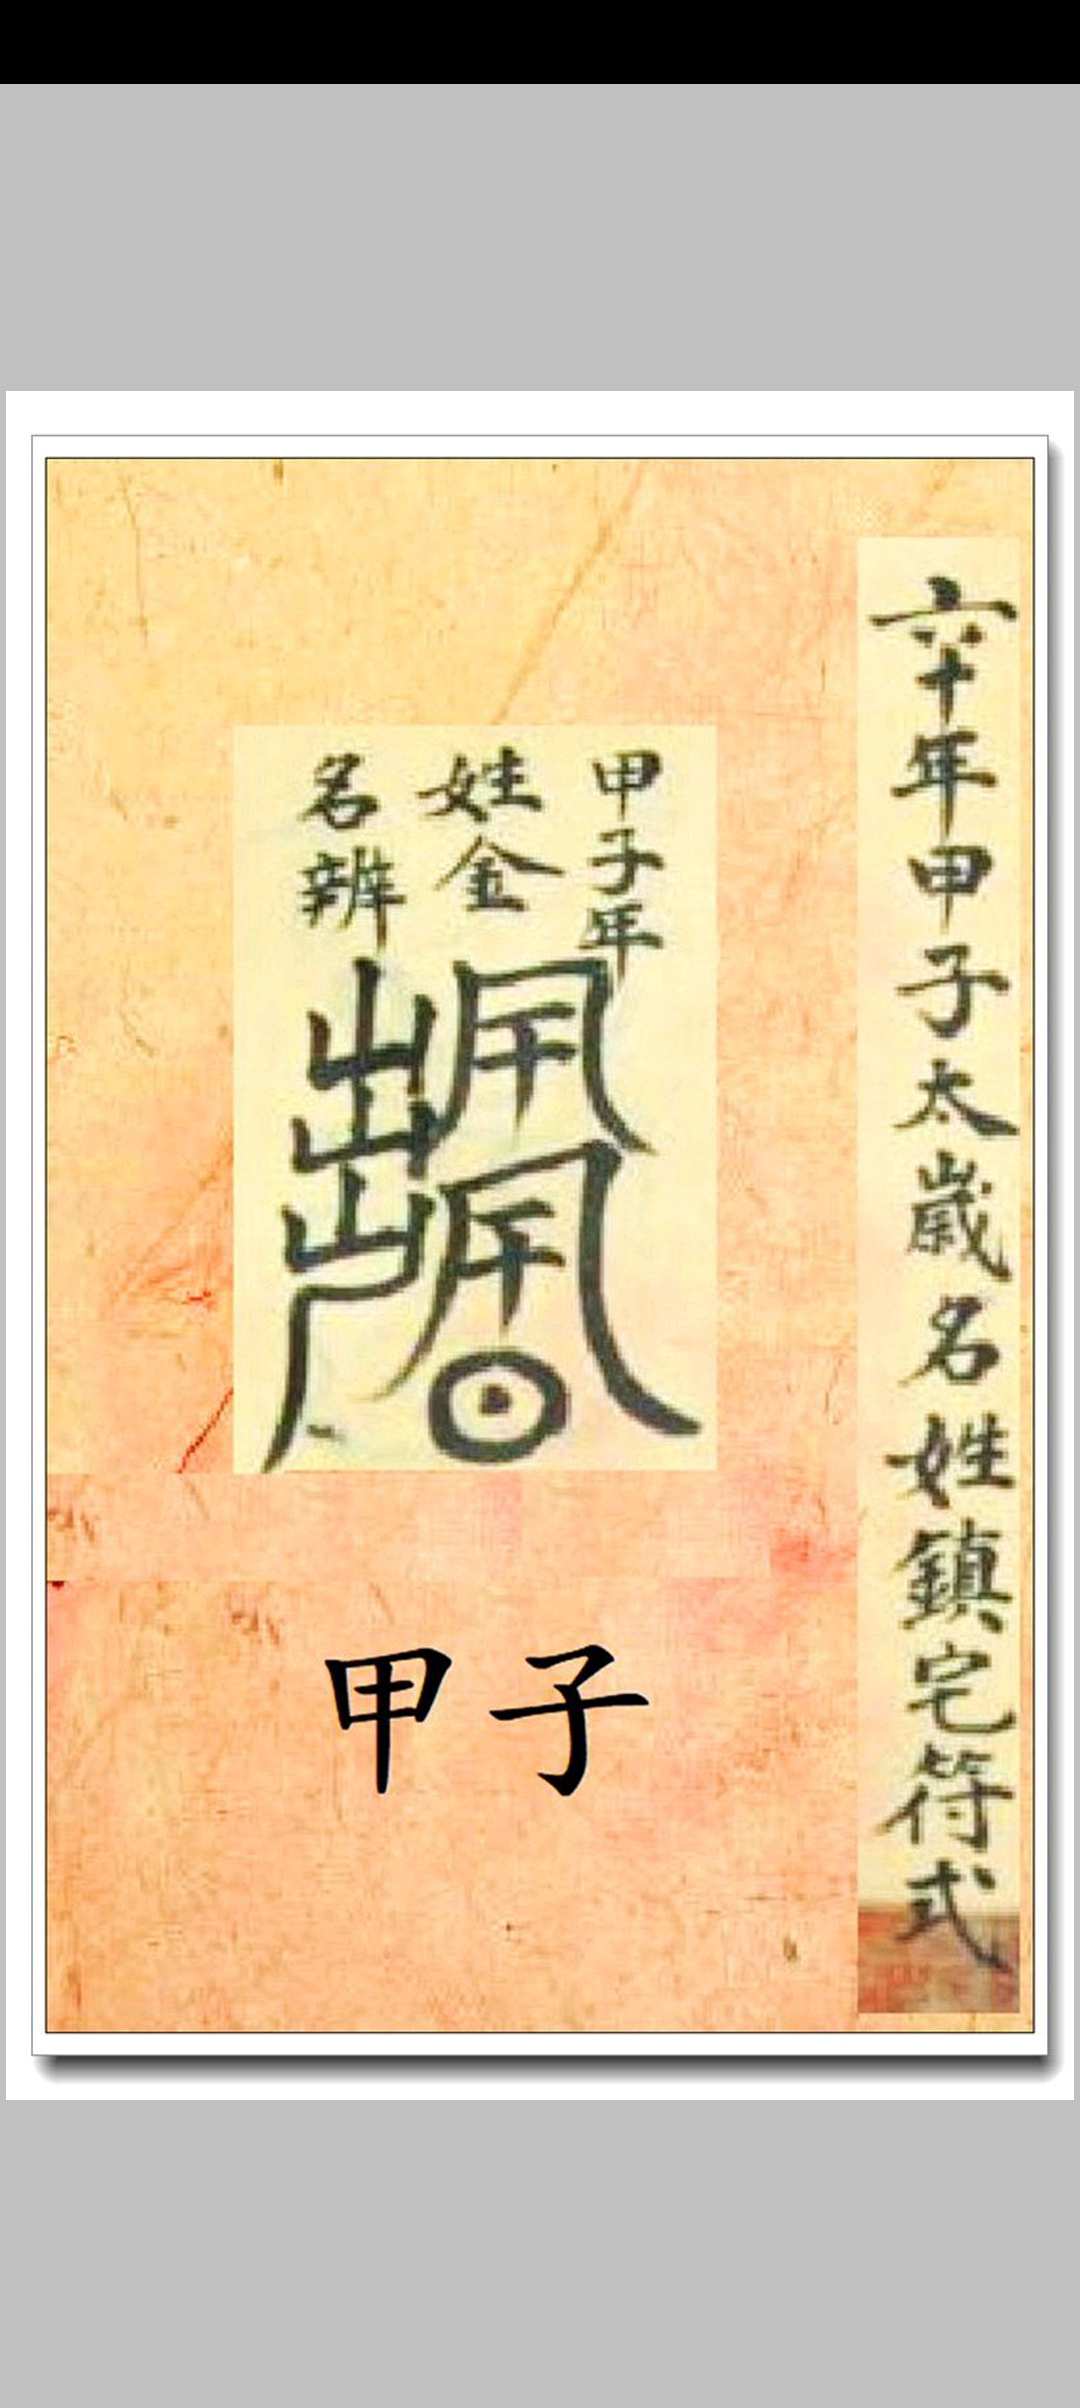 六十年甲子太歲名姓鎮宅符式
甲子年
姓金
名辨
甲子